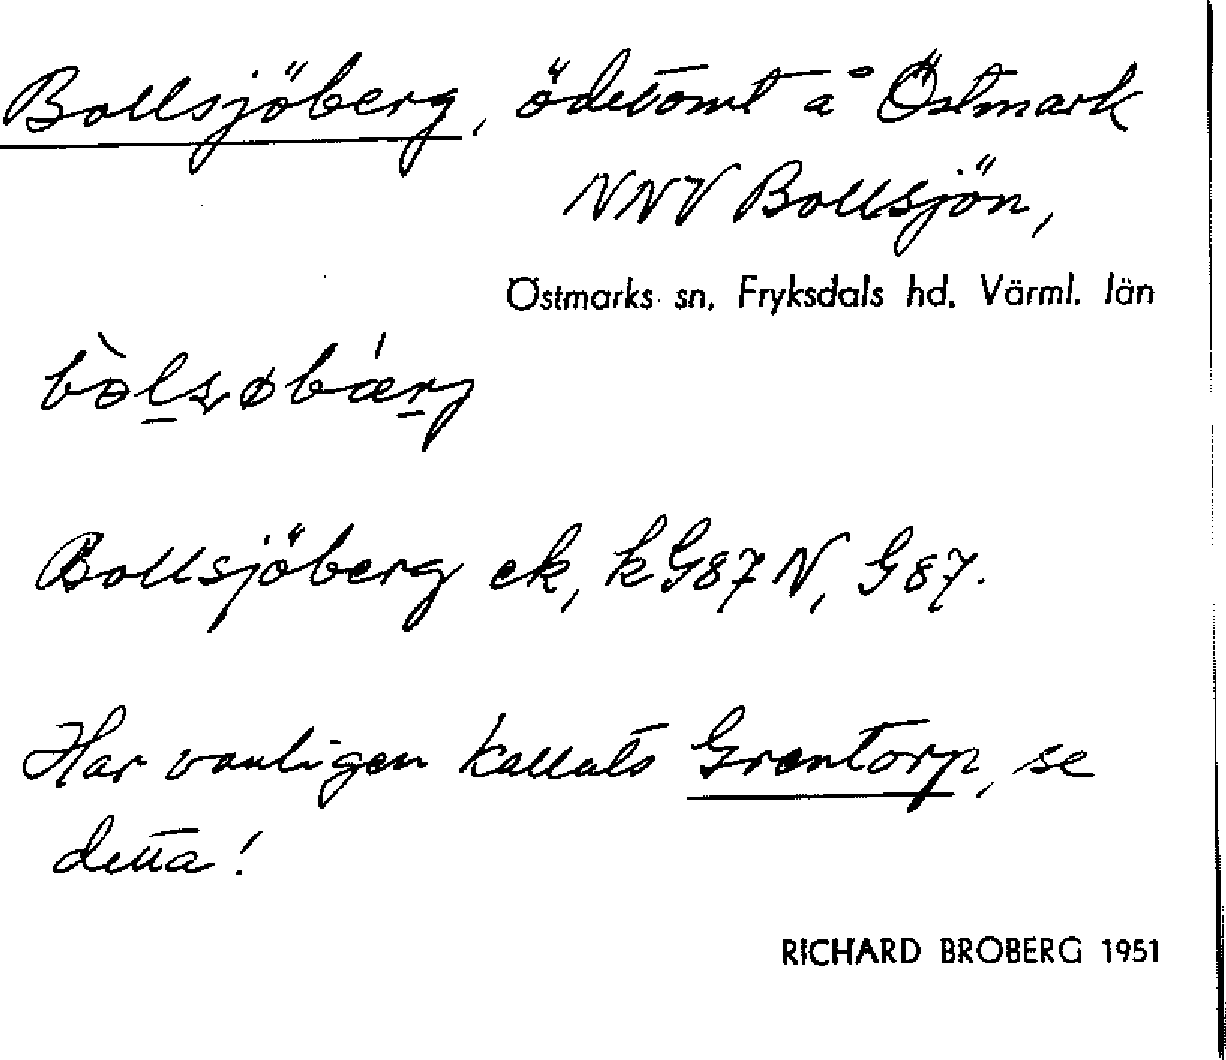 Bollsjöberg, ödetomt å Östmark
NNV Bollsjön,
Östmarks sn, Fryksdals hd. Värml. län
Bollsjöberg ek, k G87 N, G87.
Har vanligen kallats Grentorp, se
detta!
RICHARD BROBERG 1951